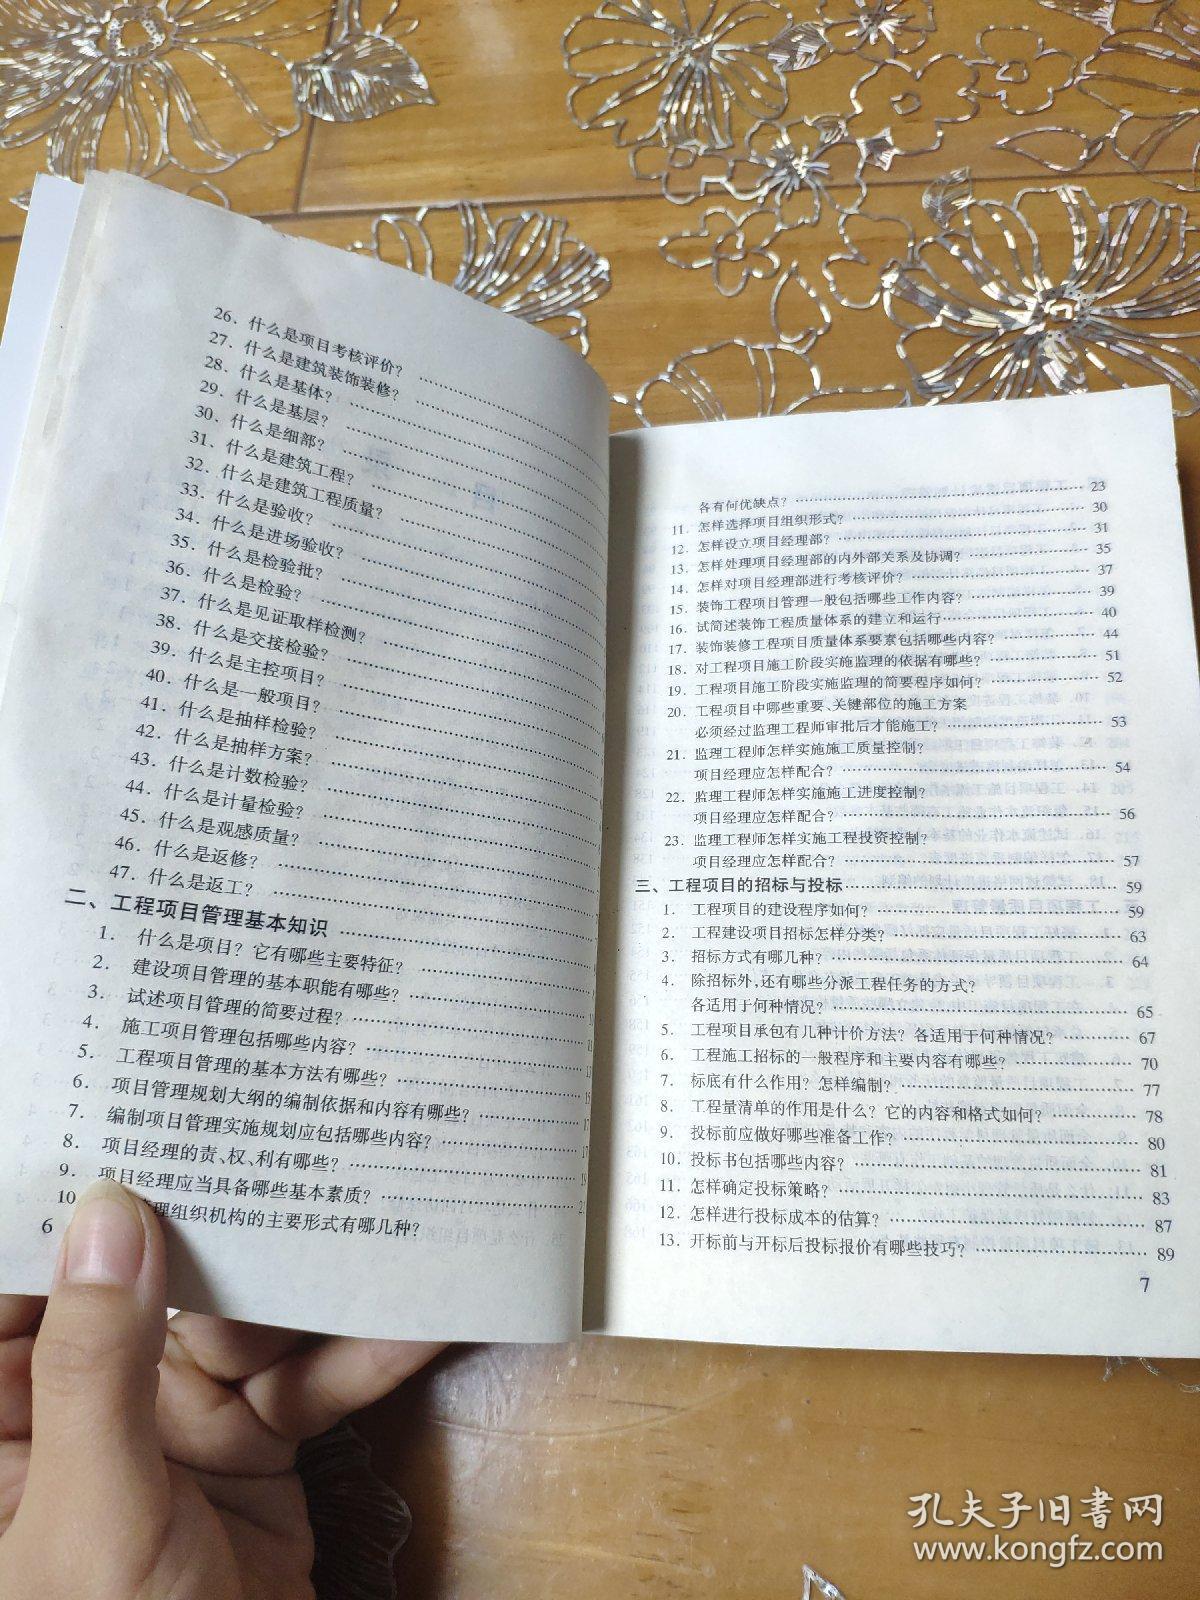 26. 什么是项目考核评价?
27. 什么是建筑装饰装修?
28. 什么是基体?
29. 什么是基层?
30. 什么是细部?
31. 什么是建筑工程?
32. 什么是建筑工程质量?
33. 什么是验收?
34. 什么是进场验收?
35. 什么是检验批?
36. 什么是检验?
37. 什么是见证取样检测?
38. 什么是交接检验?
39. 什么是主控项目?
40. 什么是一般项目?
41. 什么是抽样检验?
42. 什么是抽样方案?
43. 什么是计数检验?
44. 什么是计量检验?
45. 什么是观感质量?
46. 什么是返修?
47. 什么是返工?
二、工程项目管理基本知识
1. 什么是项目? 它有哪些主要特征?
2. 建设项目管理的基本职能有哪些?
3. 试述项目管理的简要过程?
4. 施工项目管理包括哪些内容?
5. 工程项目管理的基本方法有哪些?
6. 项目管理规划大纲的编制依据和内容有哪些?
7. 编制项目管理实施规划应包括哪些内容?
8. 项目经理的责、权、利有哪些?
9. 项目经理应当具备哪些基本素质?
10 理组织机构的主要形式有哪几种?
6
各有何优缺点? 23
11. 怎样选择项目组织形式? 30
12. 怎样设立项目经理部? 31
13. 怎样处理项目经理部的内外部关系及协调? 35
14. 怎样对项目经理部进行考核评价? 37
15. 装饰工程项目管理一般包括哪些工作内容? 39
16. 试简述装饰工程质量体系的建立和运行 40
17. 装饰装修工程项目质量体系要素包括哪些内容? 44
18. 对工程项目施工阶段实施监理的依据有哪些? 51
19. 工程项目施工阶段实施监理的简要程序如何? 52
20. 工程项目中哪些重要、关键部位的施工方案
必须经过监理工程师审批后才能施工? 53
21. 监理工程师怎样实施施工质量控制?
项目经理应怎样配合? 54
22. 监理工程师怎样实施施工进度控制?
项目经理应怎样配合? 56
23. 监理工程师怎样实施工程投资控制?
项目经理应怎样配合? 57
三、工程项目的招标与投标 59
1. 工程项目的建设程序如何? 59
2. 工程建设项目招标怎样分类? 63
3. 招标方式有哪几种? 64
4. 除招标外,还有哪些分派工程任务的方式?
各适用于何种情况? 65
5. 工程项目承包有几种计价方法? 各适用于何种情况? 67
6. 工程施工招标的一般程序和主要内容有哪些? 70
7. 标底有什么作用? 怎样编制? 77
8. 工程量清单的作用是什么? 它的内容和格式如何? 78
9. 投标前应做好哪些准备工作? 80
10. 投标书包括哪些内容? 81
11. 怎样确定投标策略? 83
12. 怎样进行投标成本的估算? 87
13. 开标前与开标后投标报价有哪些技巧? 89
7
孔夫子旧书网
www.kongfz.com